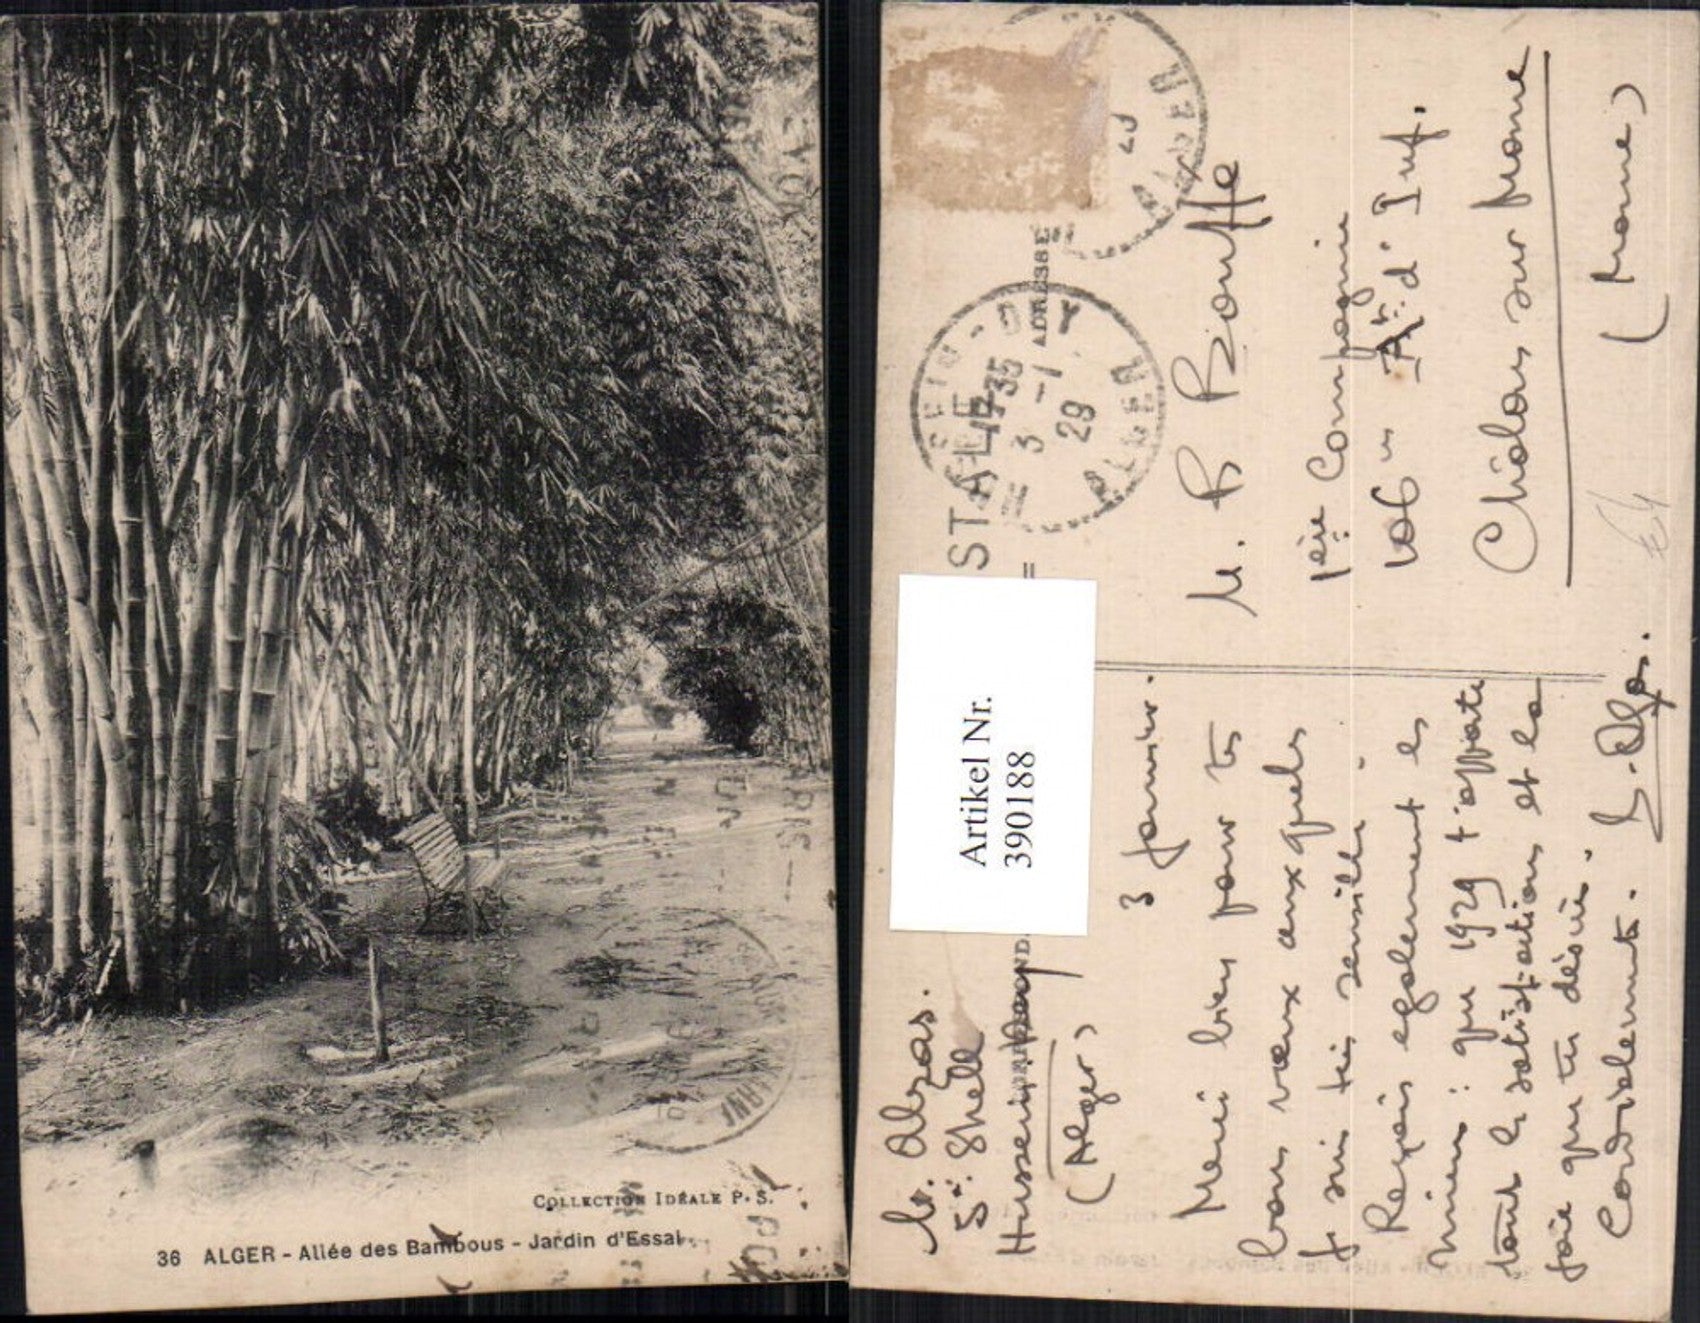 36 ALGER - Allée des Bambous - Jardin d'Essai
COLLECTION IDÉALE P. S.
Artikel Nr.
390188
ALGER
ALGER
17 35
3 -1
29
ADRESSE
M. Alzas.
Sté Shell
Hussein
(Alger)
3 Janvier.
Merci bien pour tes
bons vœux auxquels
je suis très sensible.
Reçois également les
miens : que 1929 t'apporte
tout les satisfactions et la
joie que tu désires.
Cordialement.
M. R Bouffe
1ère Compagnie
106e d'Inf.
Châlons sur Marne
(Marne)